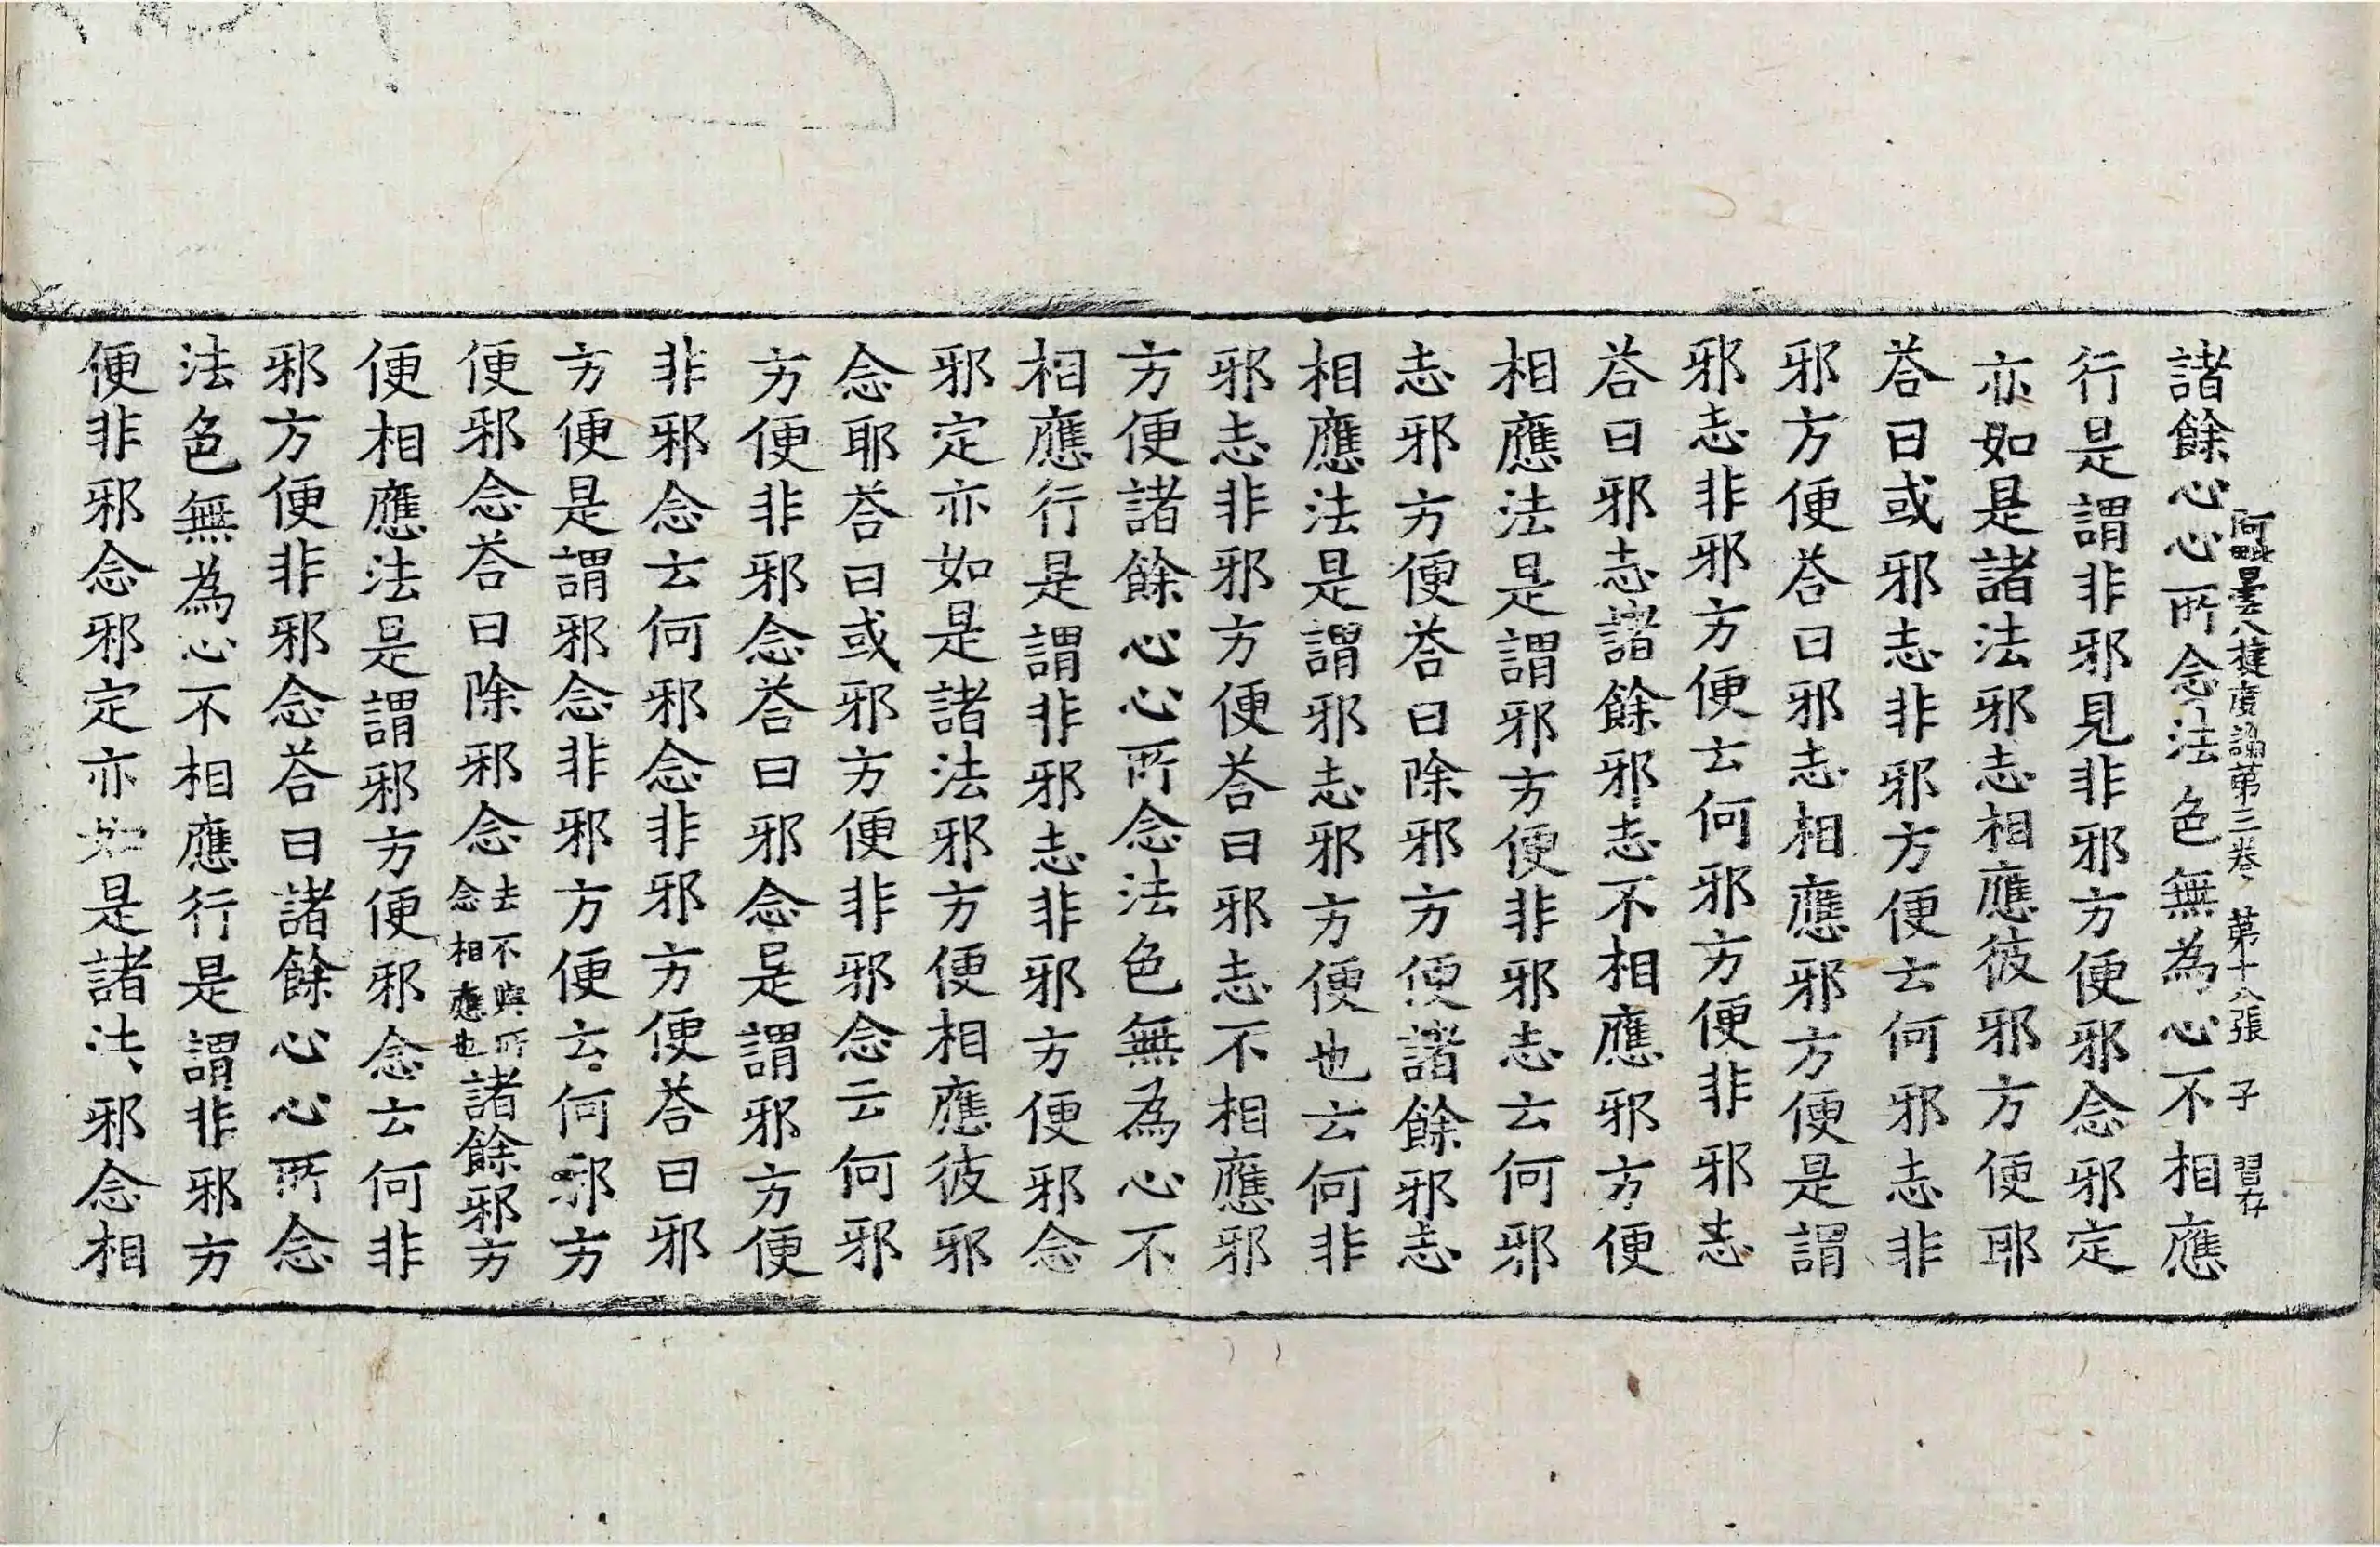 阿毗曇八揵度論第三卷 第十八張 子 習存
諸餘心心所念法色無為心不相應
行是謂非邪見非邪方便邪念邪定
亦如是諸法邪志相應彼邪方便耶
荅曰或邪志非邪方便云何邪志非
邪方便荅曰邪志相應邪方便是謂
邪志非邪方便云何邪方便非邪志
荅曰邪志諸餘邪志不相應邪方便
相應法是謂邪方便非邪志云何邪
志邪方便荅曰除邪方便諸餘邪志
相應法是謂邪志邪方便也云何非
邪志非邪方便荅曰邪志不相應邪
方便諸餘心心所念法色無為心不
相應行是謂非邪志非邪方便邪念
邪定亦如是諸法邪方便相應彼邪
念耶荅曰或邪方便非邪念云何邪
方便非邪念荅曰邪念是謂邪方便
非邪念云何邪念非邪方便荅曰邪
方便是謂邪念非邪方便云何邪方
便邪念荅曰除邪念去不與所念相應也諸餘邪方
便相應法是謂邪方便邪念云何非
邪方便非邪念荅曰諸餘心心所念
法色無為心不相應行是謂非邪方
便非邪念邪定亦如是諸法邪念相